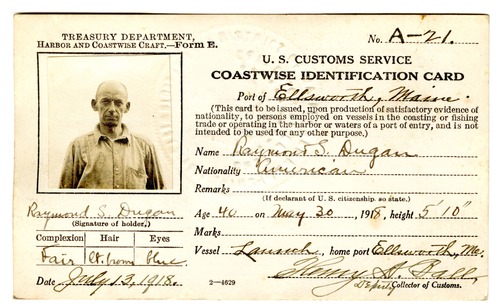 TREASURY DEPARTMENT,
HARBOR AND COASTWISE CRAFT.—FORM E.
No. A-21.
U. S. CUSTOMS SERVICE
COASTWISE IDENTIFICATION CARD
Port of Ellsworth, Maine.
(This card to be issued, upon production of satisfactory evidence of
nationality, to persons employed on vessels in the coasting or fishing
trade or operating in the harbor or waters of a port of entry, and is not
intended to be used for any other purpose.)
Name Raymond S. Dugan
Nationality American
Remarks
(If declarant of U. S. citizenship, so state.)
Age 40 on May 30, 1918, height 5' 10"
Marks
Vessel Launch, home port Ellsworth, Me.
Henry
Deputy Collector of Customs.
2—4629
Raymond S. Dugan
(Signature of holder.)
Complexion Hair Eyes
Fair lt. brown blue
Date July 13, 1918.